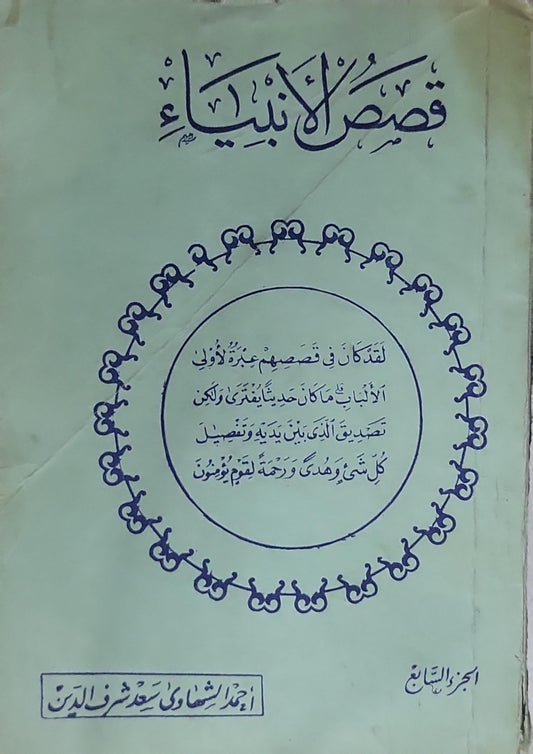 قصص الأنبياء
لَقَدْ كَانَ فِي قَصَصِهِمْ عِبْرَةٌ لِأُولِي
الْأَلْبَابِ ۗ مَا كَانَ حَدِيثًا يُفْتَرَىٰ وَلَٰكِن
تَصْدِيقَ الَّذِي بَيْنَ يَدَيْهِ وَتَفْصِيلَ
كُلِّ شَيْءٍ وَهُدًى وَرَحْمَةً لِقَوْمٍ يُؤْمِنُونَ
الجزء السَّابع
أحمد الشهاوى سَعْد شرف الدين